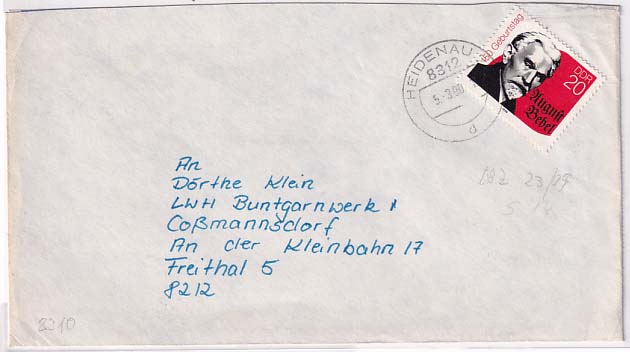 150. Geburtstag
DDR
20
August
Bebel
HEIDENAU
8312
5.-3.90
d
An
Dörthe Klein
LWH Buntgarnwerk
Coßmannsdorf
An der Kleinbahn 17
Freithal 5
8212
23/19
8210